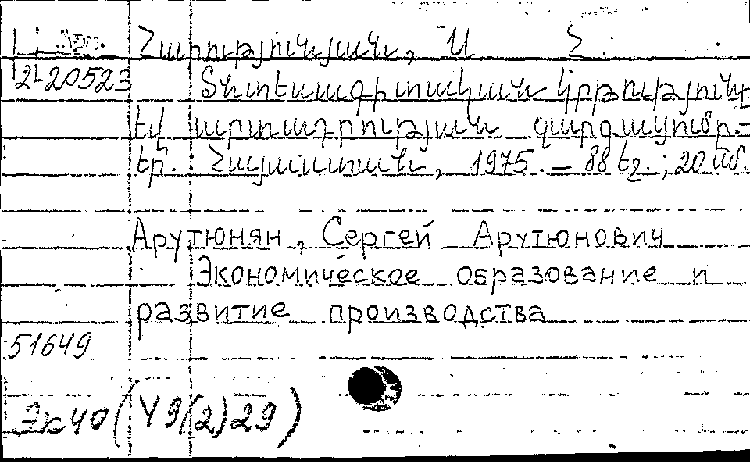 Հարությունյան, Ս. Հ.
2-20523 Տնտեսագիտական կրթություն
եվ արտադրության զարգացումը.-
եր.: Հայաստան, 1975. – 88 էջ.; 20 սմ.
Арутюнян, Сергей Арутюнович
Экономическое образование и
развитие производства
51649
Эк40 (У9(2)29)